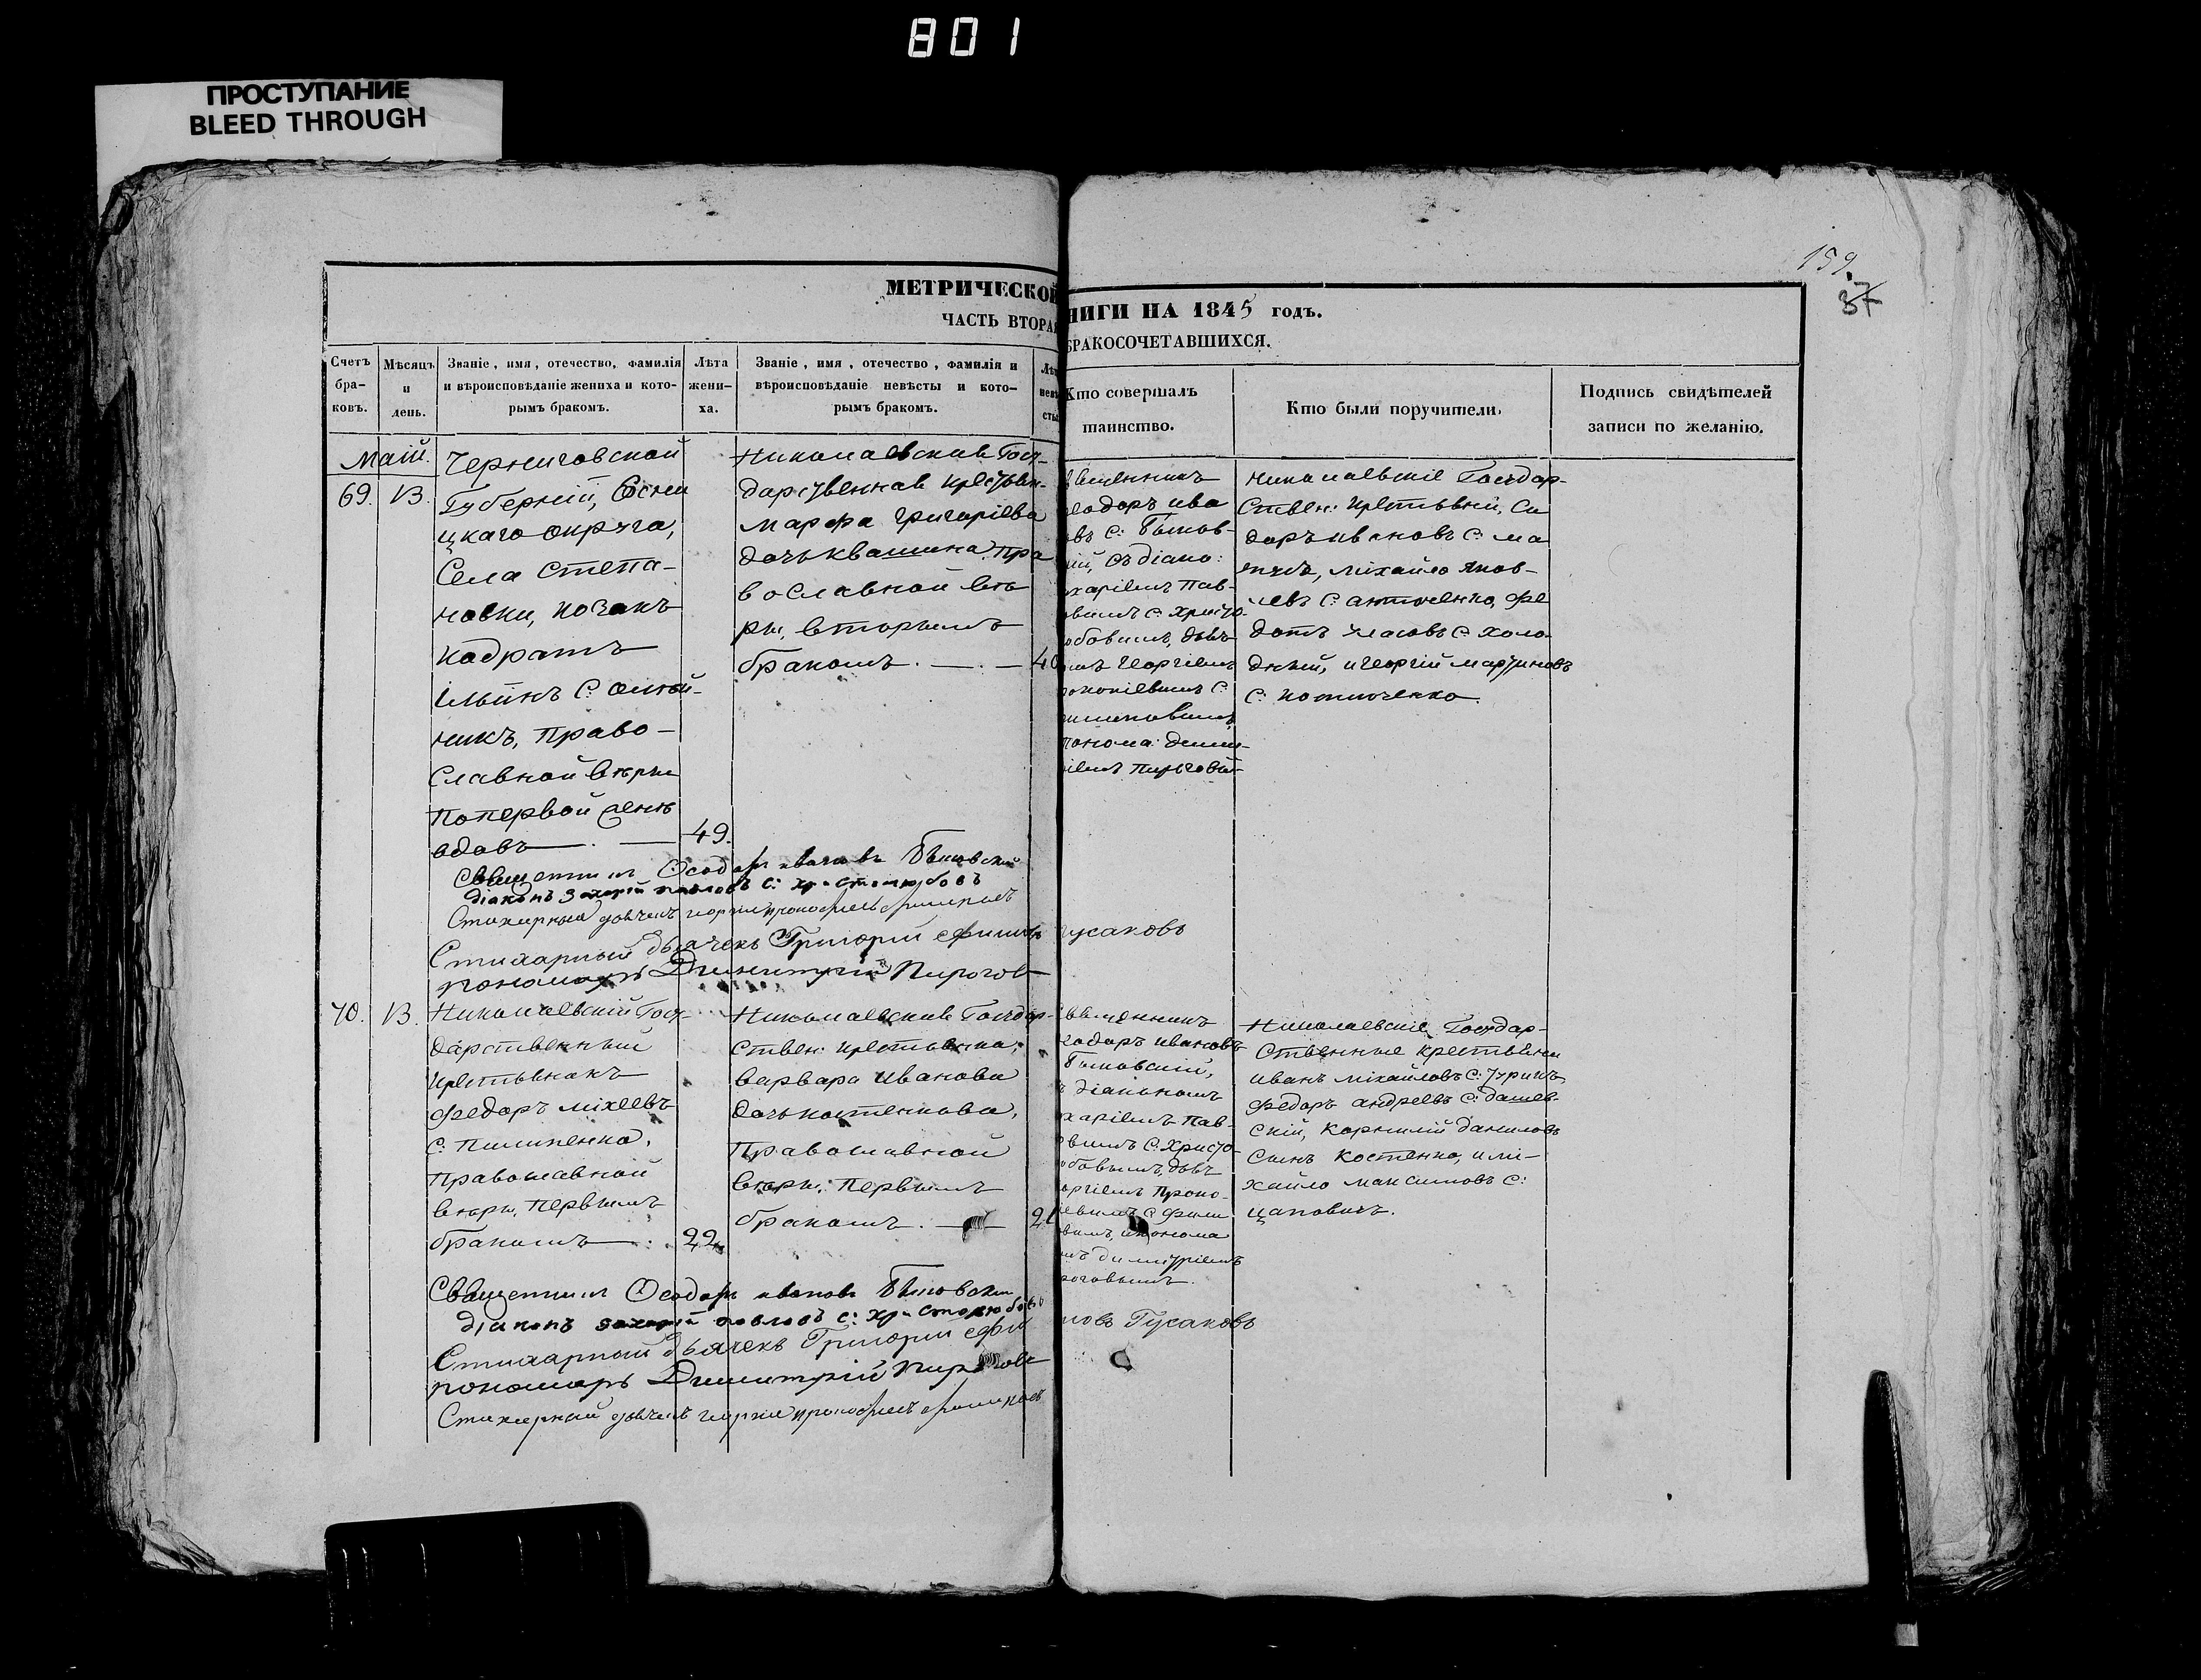 801
ПРОСТУПАНИЕ
BLEED THROUGH
159.
37
МЕТРИЧЕСКОЙ
НИГИ НА 1845 годъ.
ЧАСТЬ ВТОРАЯ
БРАКОСОЧЕТАВШИХСЯ.
Счетъ
бра-
ковъ.
Мѣсяцъ
и
день.
Званіе, имя, отечество, фамилія
и вѣроисповѣданіе жениха и кото-
рымъ бракомъ.
Лѣта
жени-
ха.
Званіе, имя, отечество, фамилія и
вѣроисповѣданіе невѣсты и кото-
рымъ бракомъ.
Лѣт
невѣ
сты
Кто совершалъ
таинство.
Кто были поручители.
Подпись свидѣтелей
записи по желанію.
Маій.
69. 13.
Черниговской
Губерніи, Сосни
цкаго округа,
Села Степа-
новки, козакъ
кодратъ
Ильинъ С. олей-
никъ, Право-
Славной вѣры
попервой женѣ
вдовъ — . — 49.
Николаевская Госу-
дарственная крестьян.
Марфа Григоріева
дочь квашина. Пра
вославной вѣ
ры, вторымъ
бракомъ. — . — 40
вященникъ
еодоръ ива
овъ С: Быков-
ій, съ діако:
харіемъ Пав-
вымъ С. Христо-
бовымъ, дьяч
мъ Георгіемъ
рокопіевымъ С.
понома: Дими-
ріемъ Пирогов-
николаевскіе Государ-
Ствен: крестьяни, Си
доръ ивановъ С. ма
михайло яков-
левъ С. антоненко, фе
дотъ власовъ С. холо
дный, и георгій мартиновъ
С.
Священникъ Ѳеодоръ ивановъ Быковский
діаконъ Захарій павловъ С: христолюбовъ
Стихарный дьячекъ георгій прокофіевъ
Стихарный дьячекъ Григорій ефимовъ Гусаковъ
пономарь Димитрій Пирогов
70. 13.
Николаевскій Госу-
дарственный
крестьянинъ
федоръ міхеевъ
С: Пилипенко,
Православной
вѣры, первымъ
бракомъ — . 22.
Николаевская Государ-
ствен: крестьянка,
варвара Иванова
дочь костенкова,
Православной
вѣры, первымъ
бракомъ. — 21
вященникъ
еодоръ ивановъ
Быковскій,
ъ діакономъ
харіемъ Пав-
вымъ С. Христо-
бовымъ, дьяч
оргіемъ Проко-
евымъ С. фили
вымъ, и понома
мъ димитріемъ
роговымъ.
Николаевскіе Государ-
ственные крестьяни
иванъ міхайловъ С: турикъ,
федоръ андреевъ С: дашев-
скій, Корнилій даниловъ
Сынъ костенко, и ми-
хайло максимовъ С:
цаповичъ.
Священникъ Ѳеодоръ ивановъ Быковский
діаконъ захарій павловъ С: христолюбовъ
Стихарный дьячекъ Григорій ефимовъ Гусаковъ
пономарь Димитрій Пирогов
Стихарный дьячекъ георгій прокофіевъ